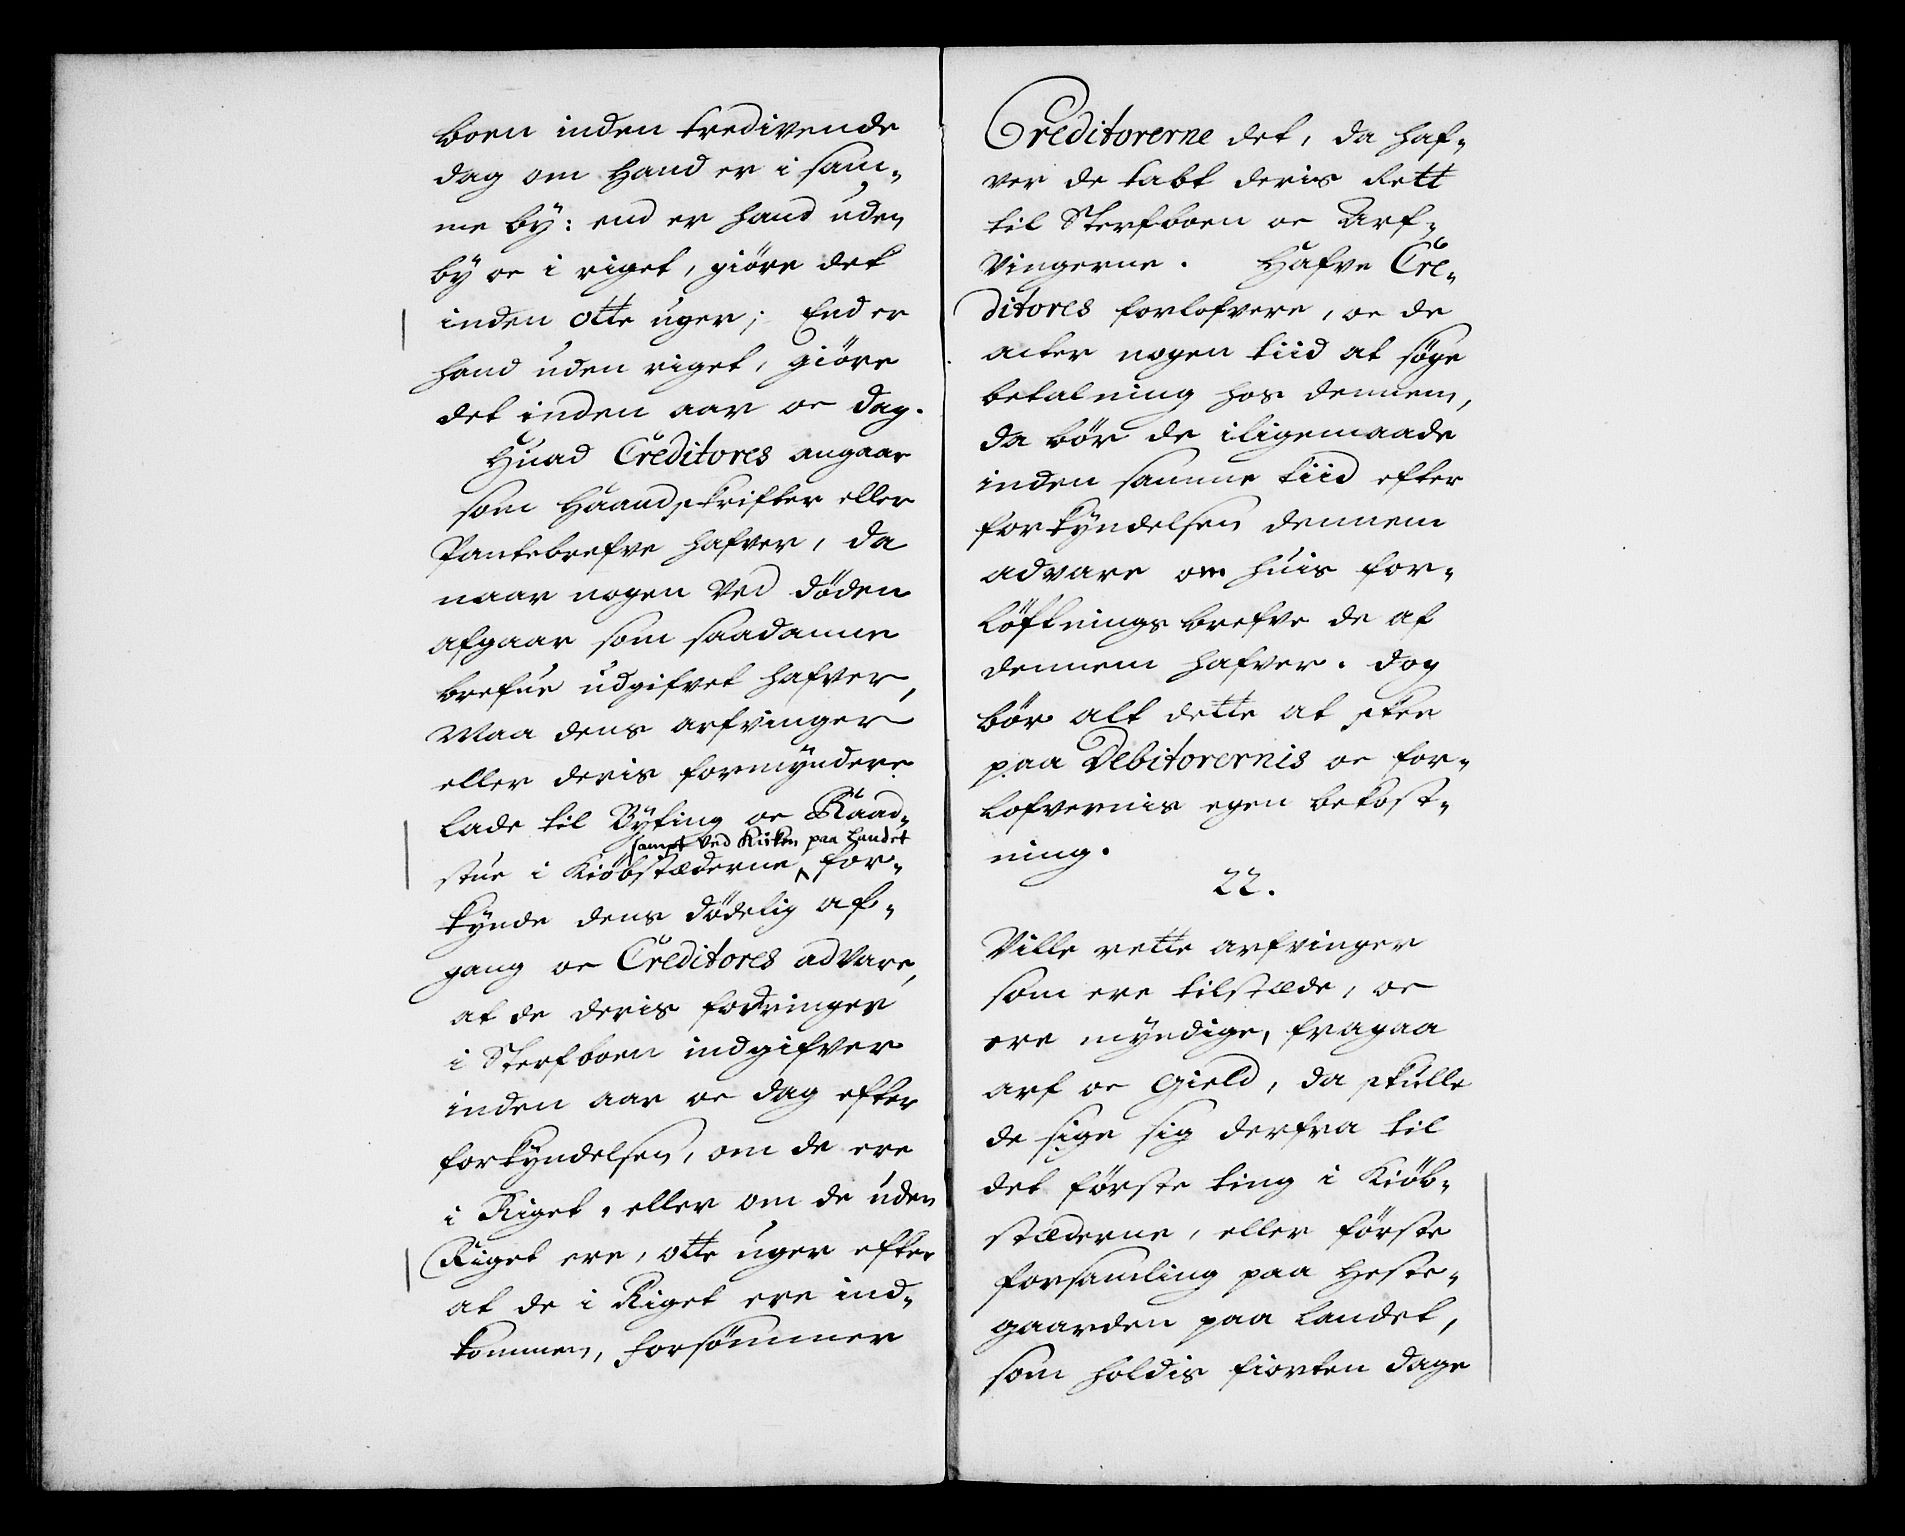 boen inden tredivende
dag om hand er i sam-
me by: end er hand uden
by oc i riget, giøre det
inden otte uger; End er
hand uden riget, giøre
det inden aar oc dag.
Huad Creditores angaar
som Haandskrifter eller
Pantebrefve hafver, da
naar nogen ved døden
afgaar som saadanne
brefve udgifvet hafver,
Maa dens arfvinger
eller deris formyndere
lade til Byting oc Raad-
sampt ved Kirken paa Landet
stue i Kiøbstæderne for-
kynde dens dødelig af-
gang oc Creditores advare,
at de deris fodringer
i Sterfboen indgifver
inden aar oc dag efter
forkyndelsen, om de ere
i Riget, eller om de uden
Riget ere, otte uger efter
at de i Riget ere ind-
kommen, forsømmer
Creditorerne det, da haf-
ver de tabt deris Rett
til Sterfboen oc Arf-
vingerne. Hafve Cre-
ditores forlofvere, oc de
acter nogen tiid at søge
betalning hos dennem,
da bør de iligemaade
inden samme tiid efter
forkyndelsen dennem
advare om huis for-
løftnings brefve de af
dennem hafver. dog
bør alt dette at skee
paa Debitorernis oc for-
lofvernis egen bekost-
ning.
22.
Ville rette arfvinger
som ere tilstæde, oc
ere myndige, fragaa
arf oc Gield, da skulle
de sige sig derfra til
det første ting i Kiøb-
stæderne, eller første
forsamling paa Heste-
gaarden paa Landet,
som holdis fiorten dage